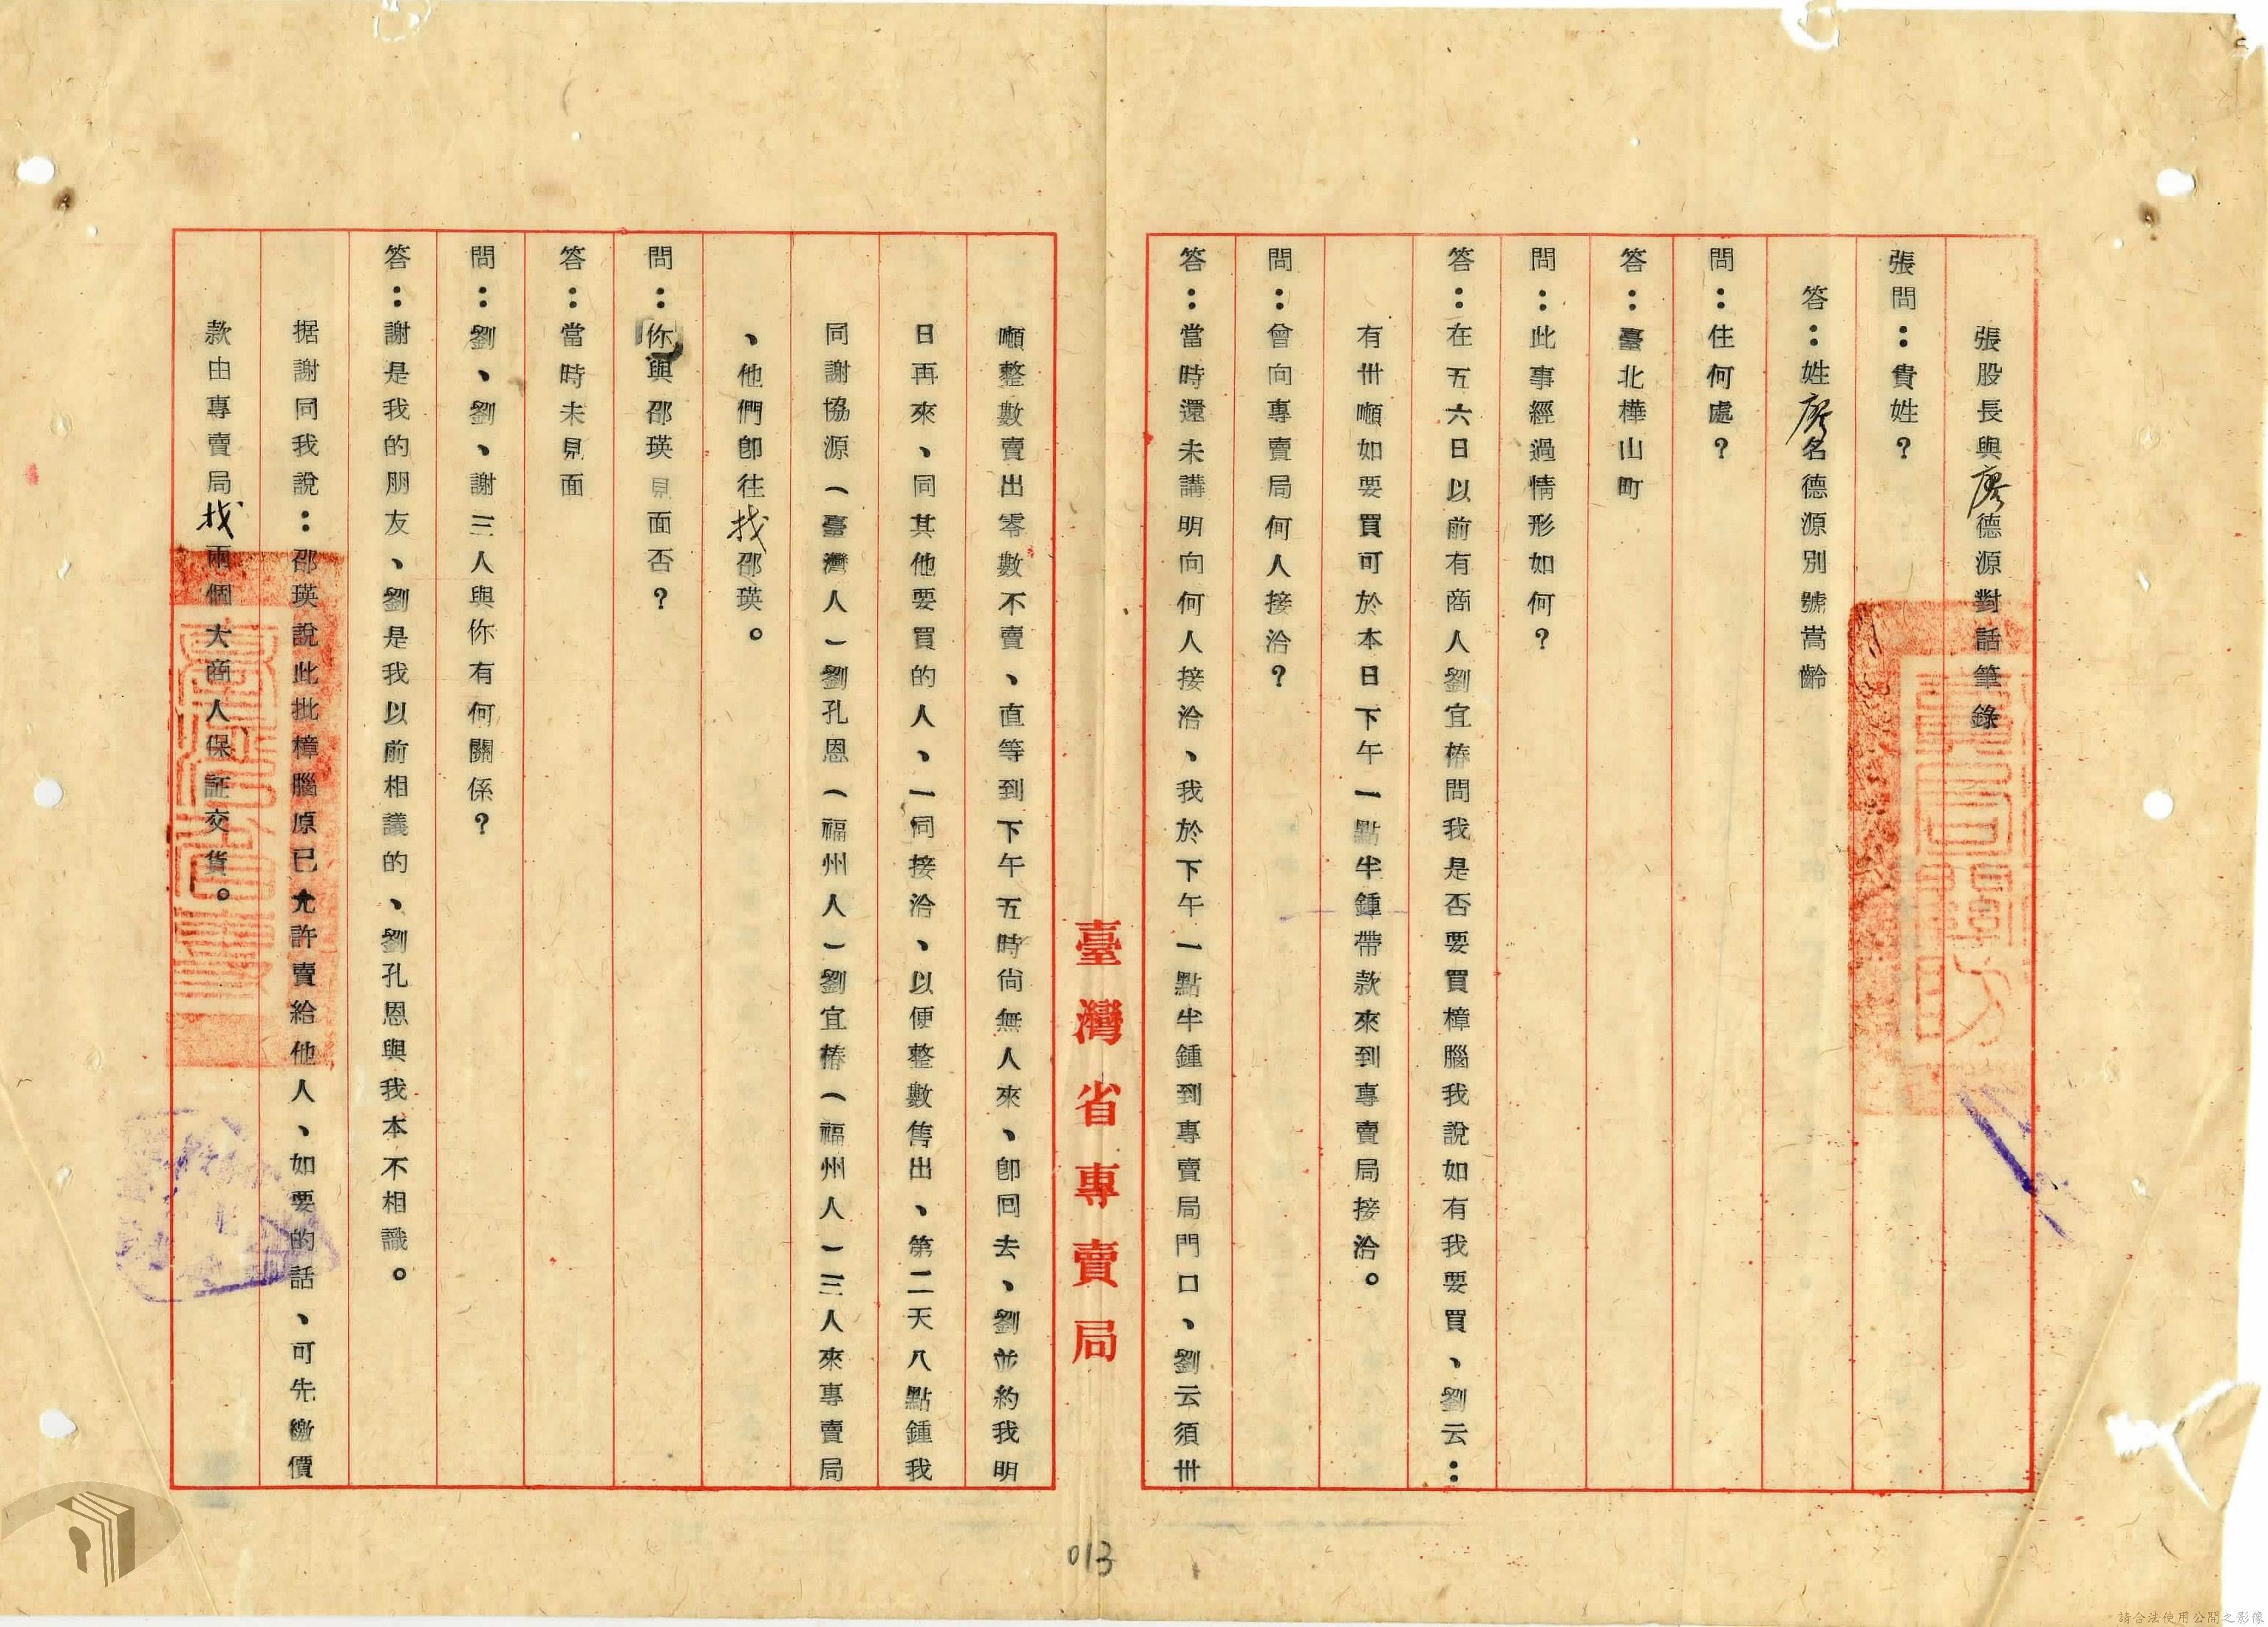 張股長與廖德源對話筆錄
張問：貴姓？
答：姓廖名德源別號嵩齡
問：住何處？
答：臺北樺山町
問：此事經過情形如何？
答：在五六日以前有商人劉宜椿問我是否要買樟腦我說如有我要買、劉云：
有卅噸如要買可於本日下午一點半鍾帶款來到專賣局接洽。
問：曾向專賣局何人接洽？
答：當時還未講明向何人接洽、我於下午一點半鍾到專賣局門口、劉云須卅
臺灣省專賣局
噸整數賣出零數不賣、直等到下午五時尙無人來、卽回去、劉並約我明
日再來、同其他要買的人、一同接洽、以便整數售出、第二天八點鍾我
同謝協源（臺灣人）劉孔恩（福州人）劉宜椿（福州人）三人來專賣局
、他們卽往找邵瑛。
問：你與邵瑛見面否？
答：當時未見面
問：劉、劉、謝三人與你有何關係？
答：謝是我的朋友、劉是我以前相議的、劉孔恩與我本不相識。
据謝同我說：邵瑛說此批樟腦原已允許賣給他人、如要的話、可先繳價
款由專賣局找兩個大商人保証交貨。
013
請合法使用公開之影像